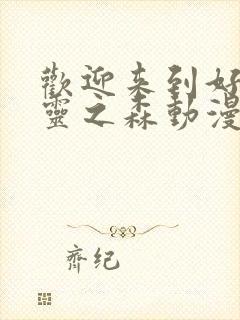 歡迎来到好
靈之森動漫
齊纪